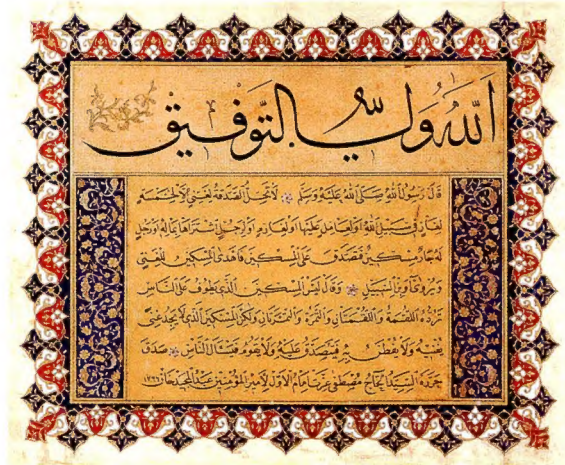 الله ولي التوفيق
قال رسول الله صلى الله عليه وسلم لا تحل الصدقة لغني إلا لخمسة
لغاز في سبيل الله أو لعامل عليها أو لغارم أو لرجل اشتراها بماله أو رجل
له جار مسكين فتصدق على المسكين فأهدى المسكين للغني
ويروى أو ابن السبيل وقال ليس المسكين الذي يطوف على الناس
ترده اللقمة واللقمتان والتمرة والتمرتان ولكن المسكين الذي لا يجد غنى
يغنيه ولا يفطن به فيتصدق عليه ولا يقوم فيسأل الناس صدق
السيد الحاج مصطفى عزت إمام الأول لأمير المؤمنين عبد المجيد خان